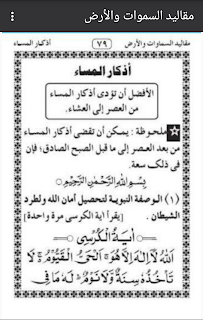 مقاليد السموات والأرض
مقاليد السماوات والأرض ٧٩ أذكار المساء
أذكار المساء
الأفضل أن تؤدى أذكار المساء
من العصر إلى العشاء.
ملحوظة : يمكن أن تقضى أذكار المساء
من بعد العصر إلى ما قبل الصبح الصادق؛ فإن
في ذلك سعة.
بِسْمِ اللهِ الرَّحْمٰنِ الرَّحِيْمِ
(١) الوصفة النبوية لتحصيل أمان الله ولطرد
الشيطان . [يقرأ آية الكرسي مرة واحدة]
آيَةُ الْكُرْسِي
اَللهُ لَآ اِلٰهَ اِلَّا هُوَ ۚ اَلْحَيُّ الْقَيُّوْمُ ۚ لَا
تَأْخُذُهٗ سِنَةٌ وَّلَا نَوْمٌ ۭ لَهٗ مَا فِي